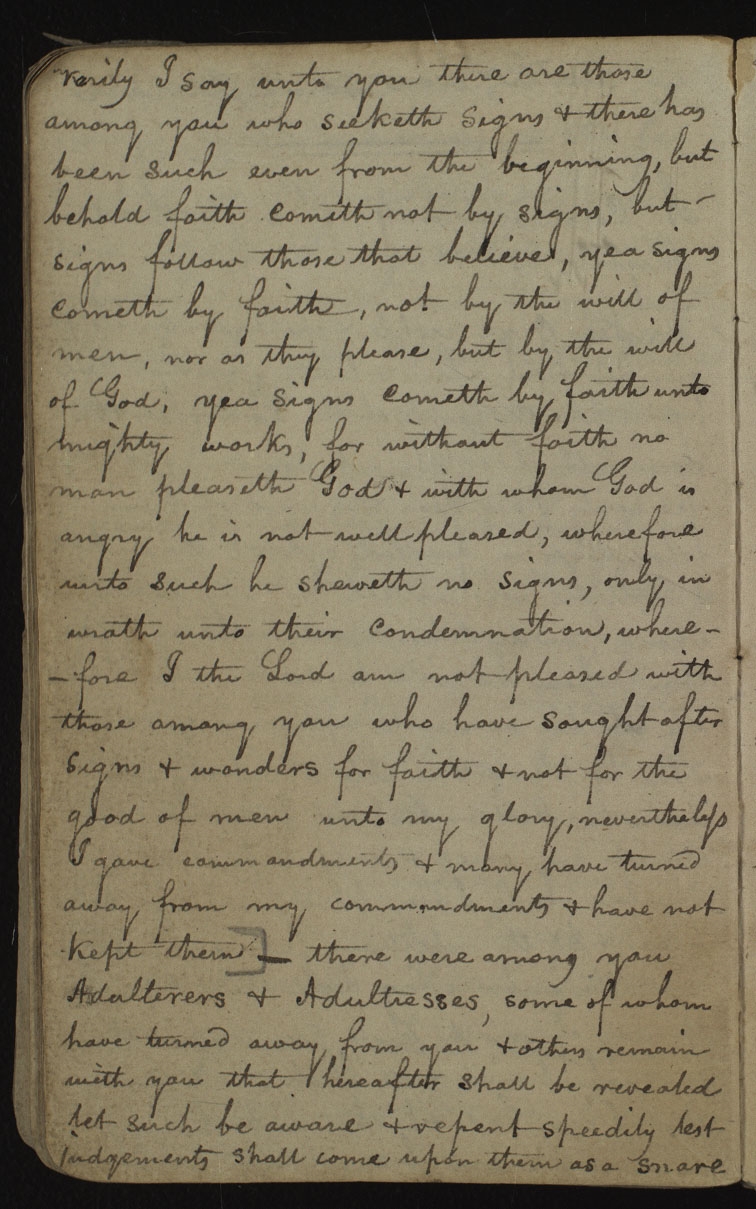 verily I say unto you there are those
among you who seeketh signs & there has
been such even from the beginning, but
behold faith comith not by signs, but
signs follow those that believe, yea signs
cometh by faith, not by the will of
men, nor as they please, but by the will
of God, yea signs cometh by faith unto
mighty works, for without faith no
man pleaseth God & with whom God is
angry he is not well pleased, wherefore
unto such he sheweth no signs, only in
wrath unto their condemnation, where-
-fore I the Lord am not pleased with
those among you who have sought after
signs & wonders for faith & not for the
good of men unto my glory, nevertheless
I gave commandments & many have turned
away from my commandments & have not
kept them] — there were among you
Adulterers & Adultresses, some of whom
have turned away from you & others remain
with you that hereafter shall be revealed
let such be aware & repent speedily lest
judgements shall come upon them as a snare